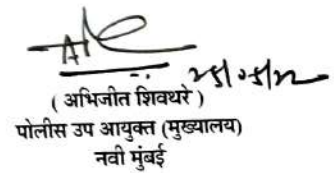 २५/०५/२२
( अभिजीत शिवथरे )
पोलीस उप आयुक्त (मुख्यालय)
नवी मुंबई